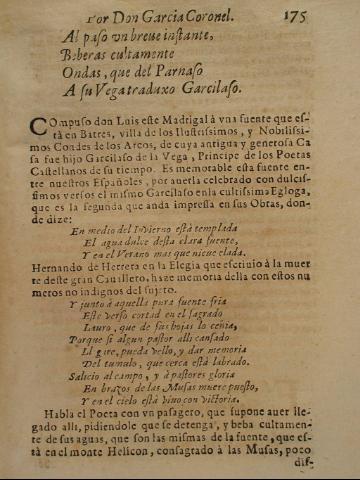 Por Don Garcia Coronel. 175
Al paso vn breue instante,
Beberas cultamente
Ondas, que del Parnaso
A su Vega traduxo Garcilaso.
Compuso don Luis este Madrigal à vna fuente que es-
tà en Batres, villa de los Ilustrissimos, y Nobilissi-
mos Condes de los Arcos, de cuya antigua y generosa Ca
sa fue hijo Garcilaso de la Vega, Principe de los Poetas
Castellanos de su tiempo. Es memorable esta fuente en-
tre nuestros Españoles, por auerla celebrado con dulcis-
simos versos el mismo Garcilaso en la cultissima Egloga,
que es la segunda que anda impressa en sus Obras, don-
de dize:
En medio del Invierno està templada
El agua dulce desta clara fuente,
Y en el Verano mas que nieue elada.
Hernando de Herrera en la Elegia que escriuiò à la muer
te deste gran Cauallero, haze memoria della con estos nu
meros no indignos del sujeto.
Y junto à aquella pura fuente fria
Este verso cortad en el sagrado
Lauro, que de sus hojas lo ceñia,
Porque si algun pastor alli cansado
Ll gare, pueda vello, y dar memoria
Del tumulo, que cerca està labrado.
Salicio al campo, y à pastores gloria
En brazos de las Musas muere puesto,
Y en el cielo està viuo con victoria.
Habla el Poeta con vn pasagero, que supone auer lle-
gado alli, pidiendole que se detenga, y beba cultamen-
te de sus aguas, que son las mismas de la fuente, que es-
tà en el monte Helicon, consagrado à las Musas, poco
dis-